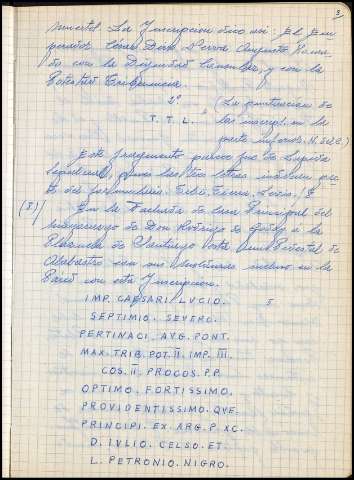 3
muerto. La Inscripcion dice asi: El Em
perador Cesar Divo Nerva Augusto Honra
do con la Dignidad Consular, y con la
Potestad Tribunicia.
2º
T. T. L. (La continuacion de
las inscript. en la
parte inferior. N. del C.)
Este fragmento parece que de Lapida
sepulcral, pues las tres letras indican par
te del formulario. Sibi Terra Levis.
(3) En la Fachada de la Casa Principal del
de Don Rodrigo de Godoy a la
Plazuela de Santiago Pedestal de
Alabastro con sus incluso en la
Pared con esta Inscripcion.
IMP. CAESARI. LVCIO.
SEPTIMIO. SEVERO.
PERTINACI. AVG. PONT.
MAX. TRIB. POT. II. IMP. III.
COS. II. PROCOS. P.P.
OPTIMO. FORTISSIMO.
PROVIDENTISSIMO. QVE.
PRINCIPI. EX. ARG. P. XC.
D. IVLIO. CELSO. ET.
L. PETRONIO. NIGRO.